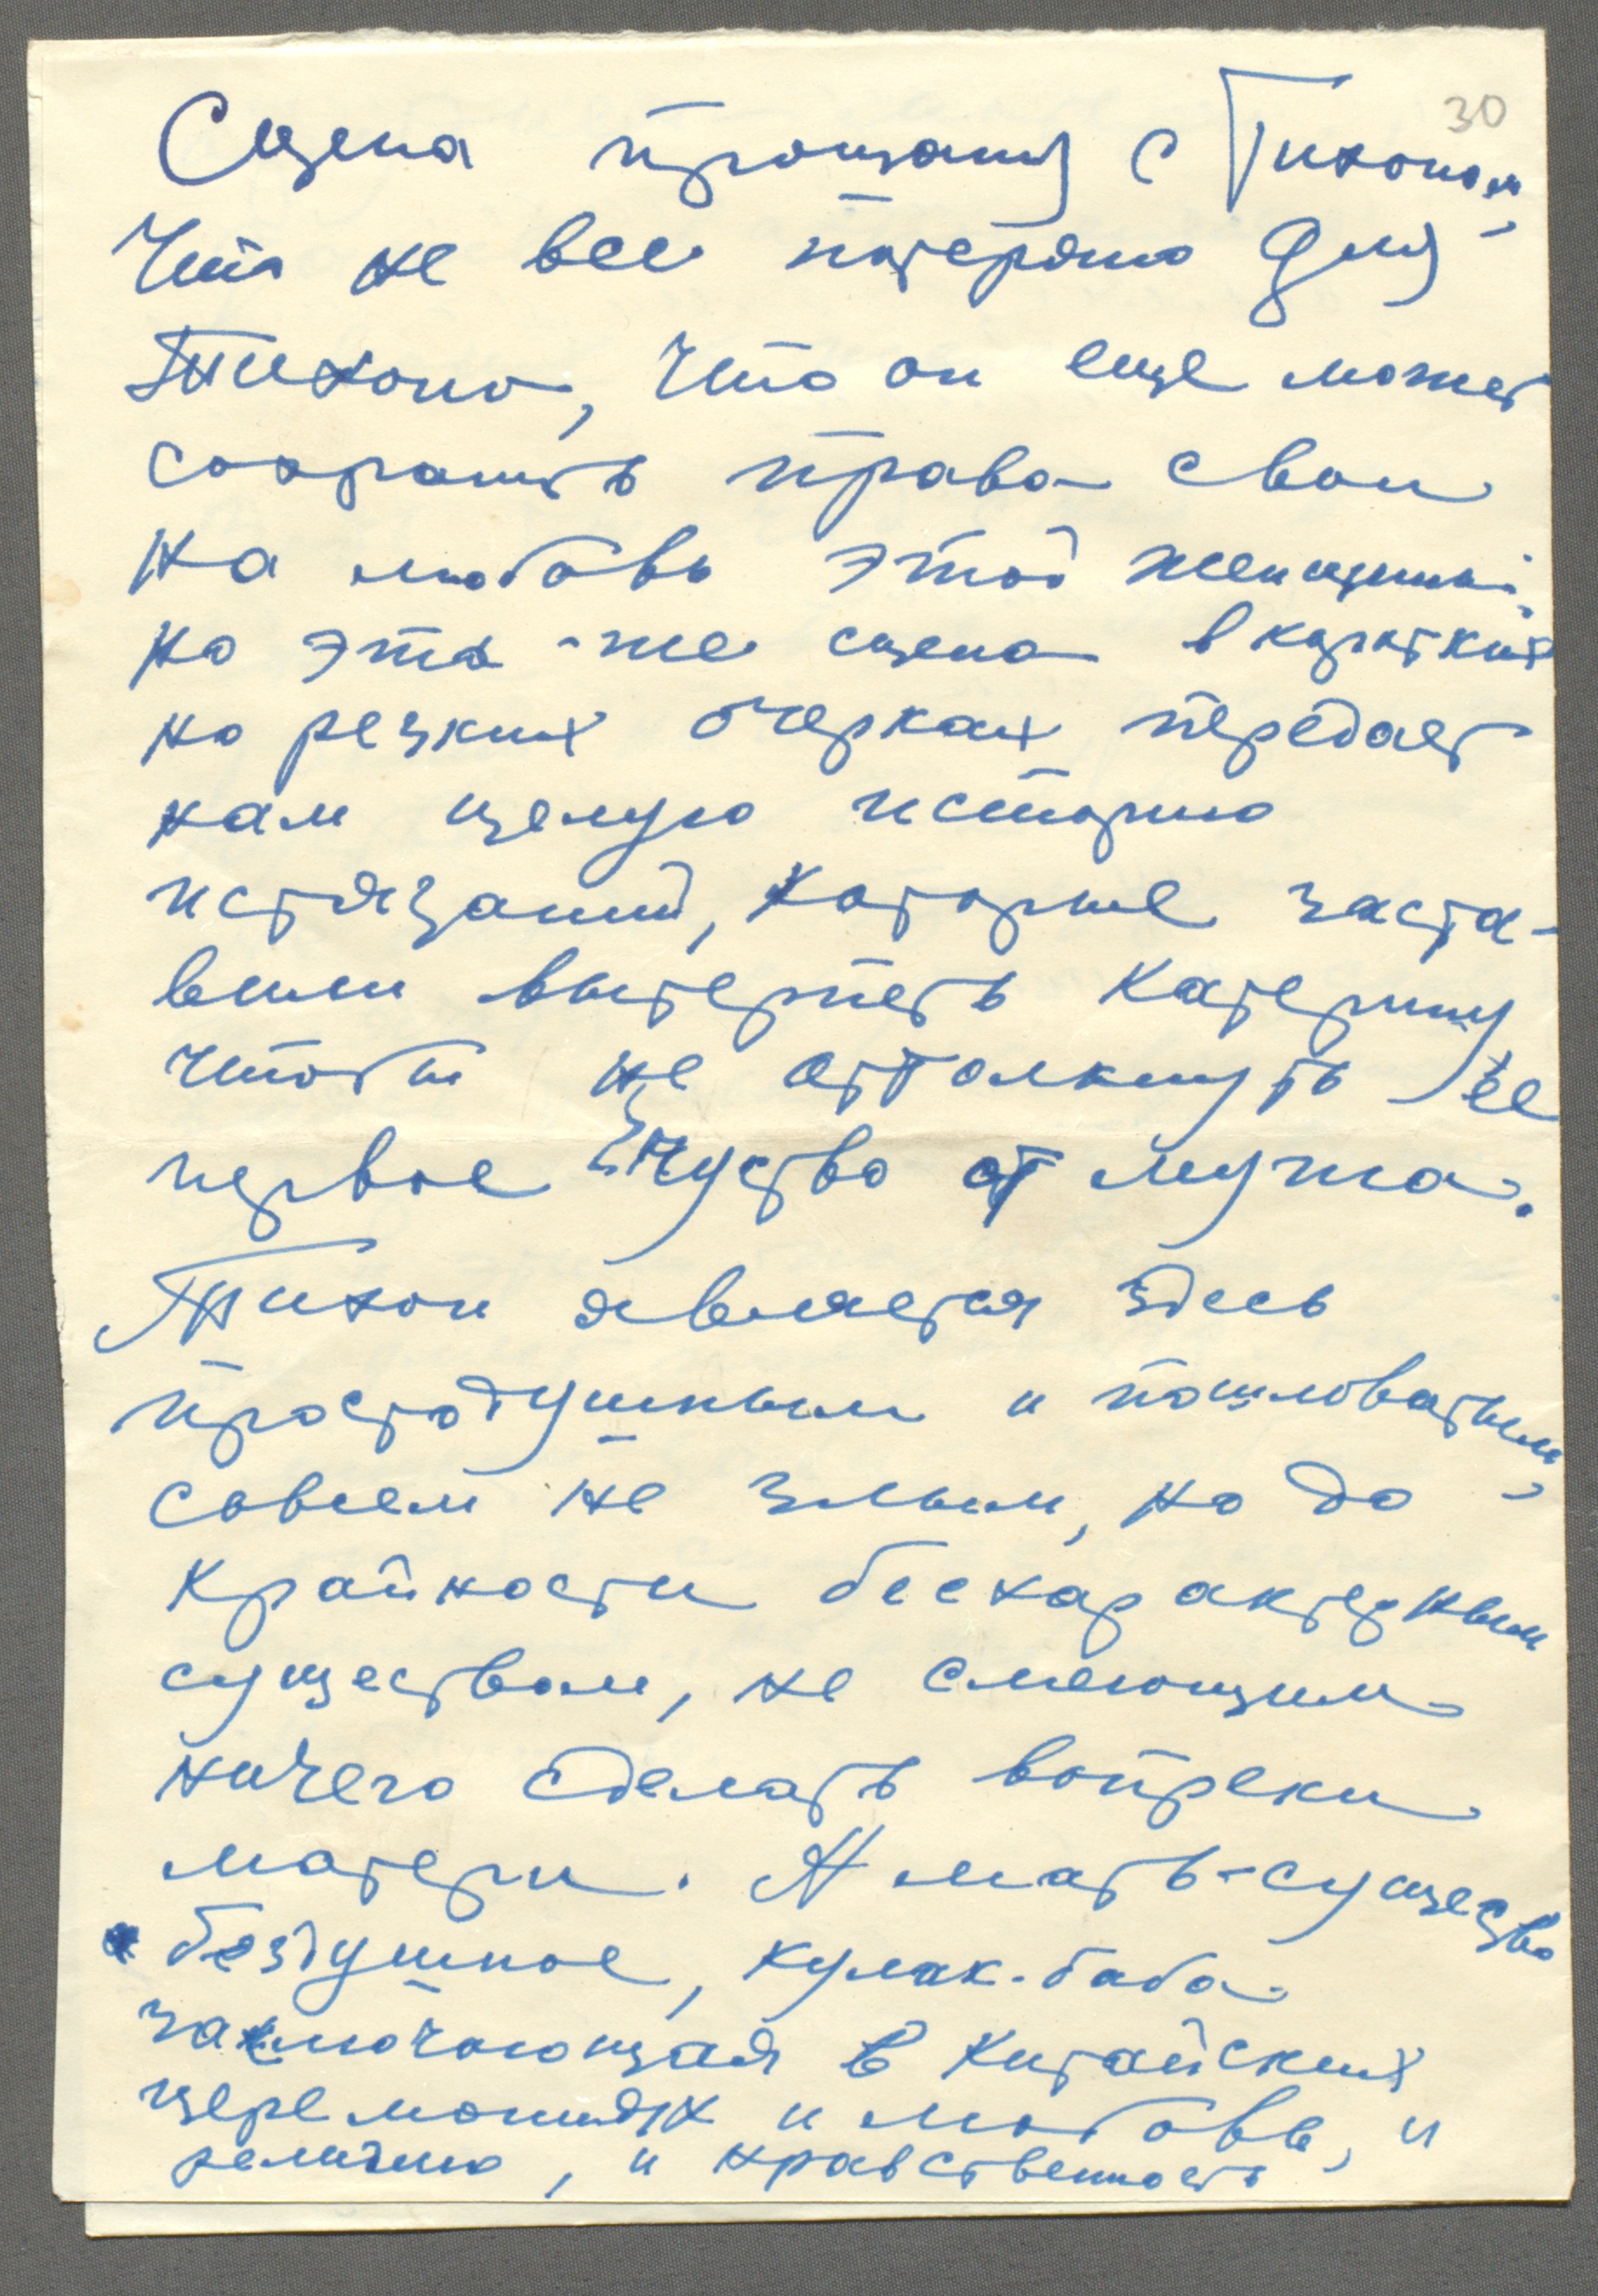 30
Сцена прощания с Тихоном,
Что не все потеряно для
Тихона, что он еще может
сохранить права свои
на любовь этой женщины;
но эта-же сцена в коротких
но резких очерках передает
нам целую историю
истязаний, которые заста-
вили вытерпеть Катерину
чтобы не оттолкнуть ее
первое чуство от мужа.
Тихон является здесь
простодушным и пошловатым,
совсем не злым, но до
крайности бесхарактерным
существом, не смеющим
ничего сделать вопреки
матери. А мать-существо
бездушное, кулак-баба
заключающая в китайских
церемониях и любовь, и
религию, и нравственность